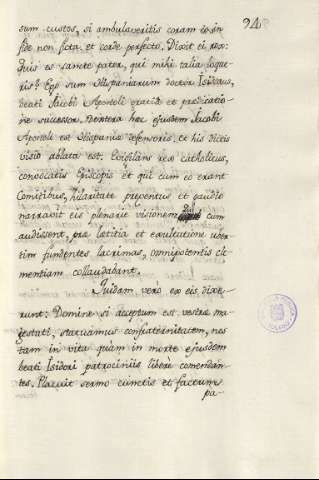 94
sum custos, si ambulaveritis coram eo in
fide non ficta et corde perfecto. Dixit ei rex:
Quis es sancte pater, qui mihi talia loque
ris? Ego sum Hispaniarum doctor Isidorus,
beati Jacobi Apostoli gratia et predicatio
ne successor. Dextera hæc ejusdem Jacobi
Apostoli est Hispaniæ defensoris. et his dictis
visio ablata est. Evigilans rex catholicus,
convocatis Episcopis et qui cum eo erant
Comitibus, hilaritate preventus et gaudio
narravit eis plenarie visionem cum
audissent, præ letitia et exultatione uber
tim fundentes lacrimas, omnipotentis cle
mentiam collaudabant.
Quidam vero ex eis dixe
runt: Domine si acceptum est vestræ ma
gestati, statuamus confraternitatem, nos
tam in vita quam in morte ejusdem
beati Isidori patrociniis libere comendan
tes. Placuit sermo cunctis et factum
pa-